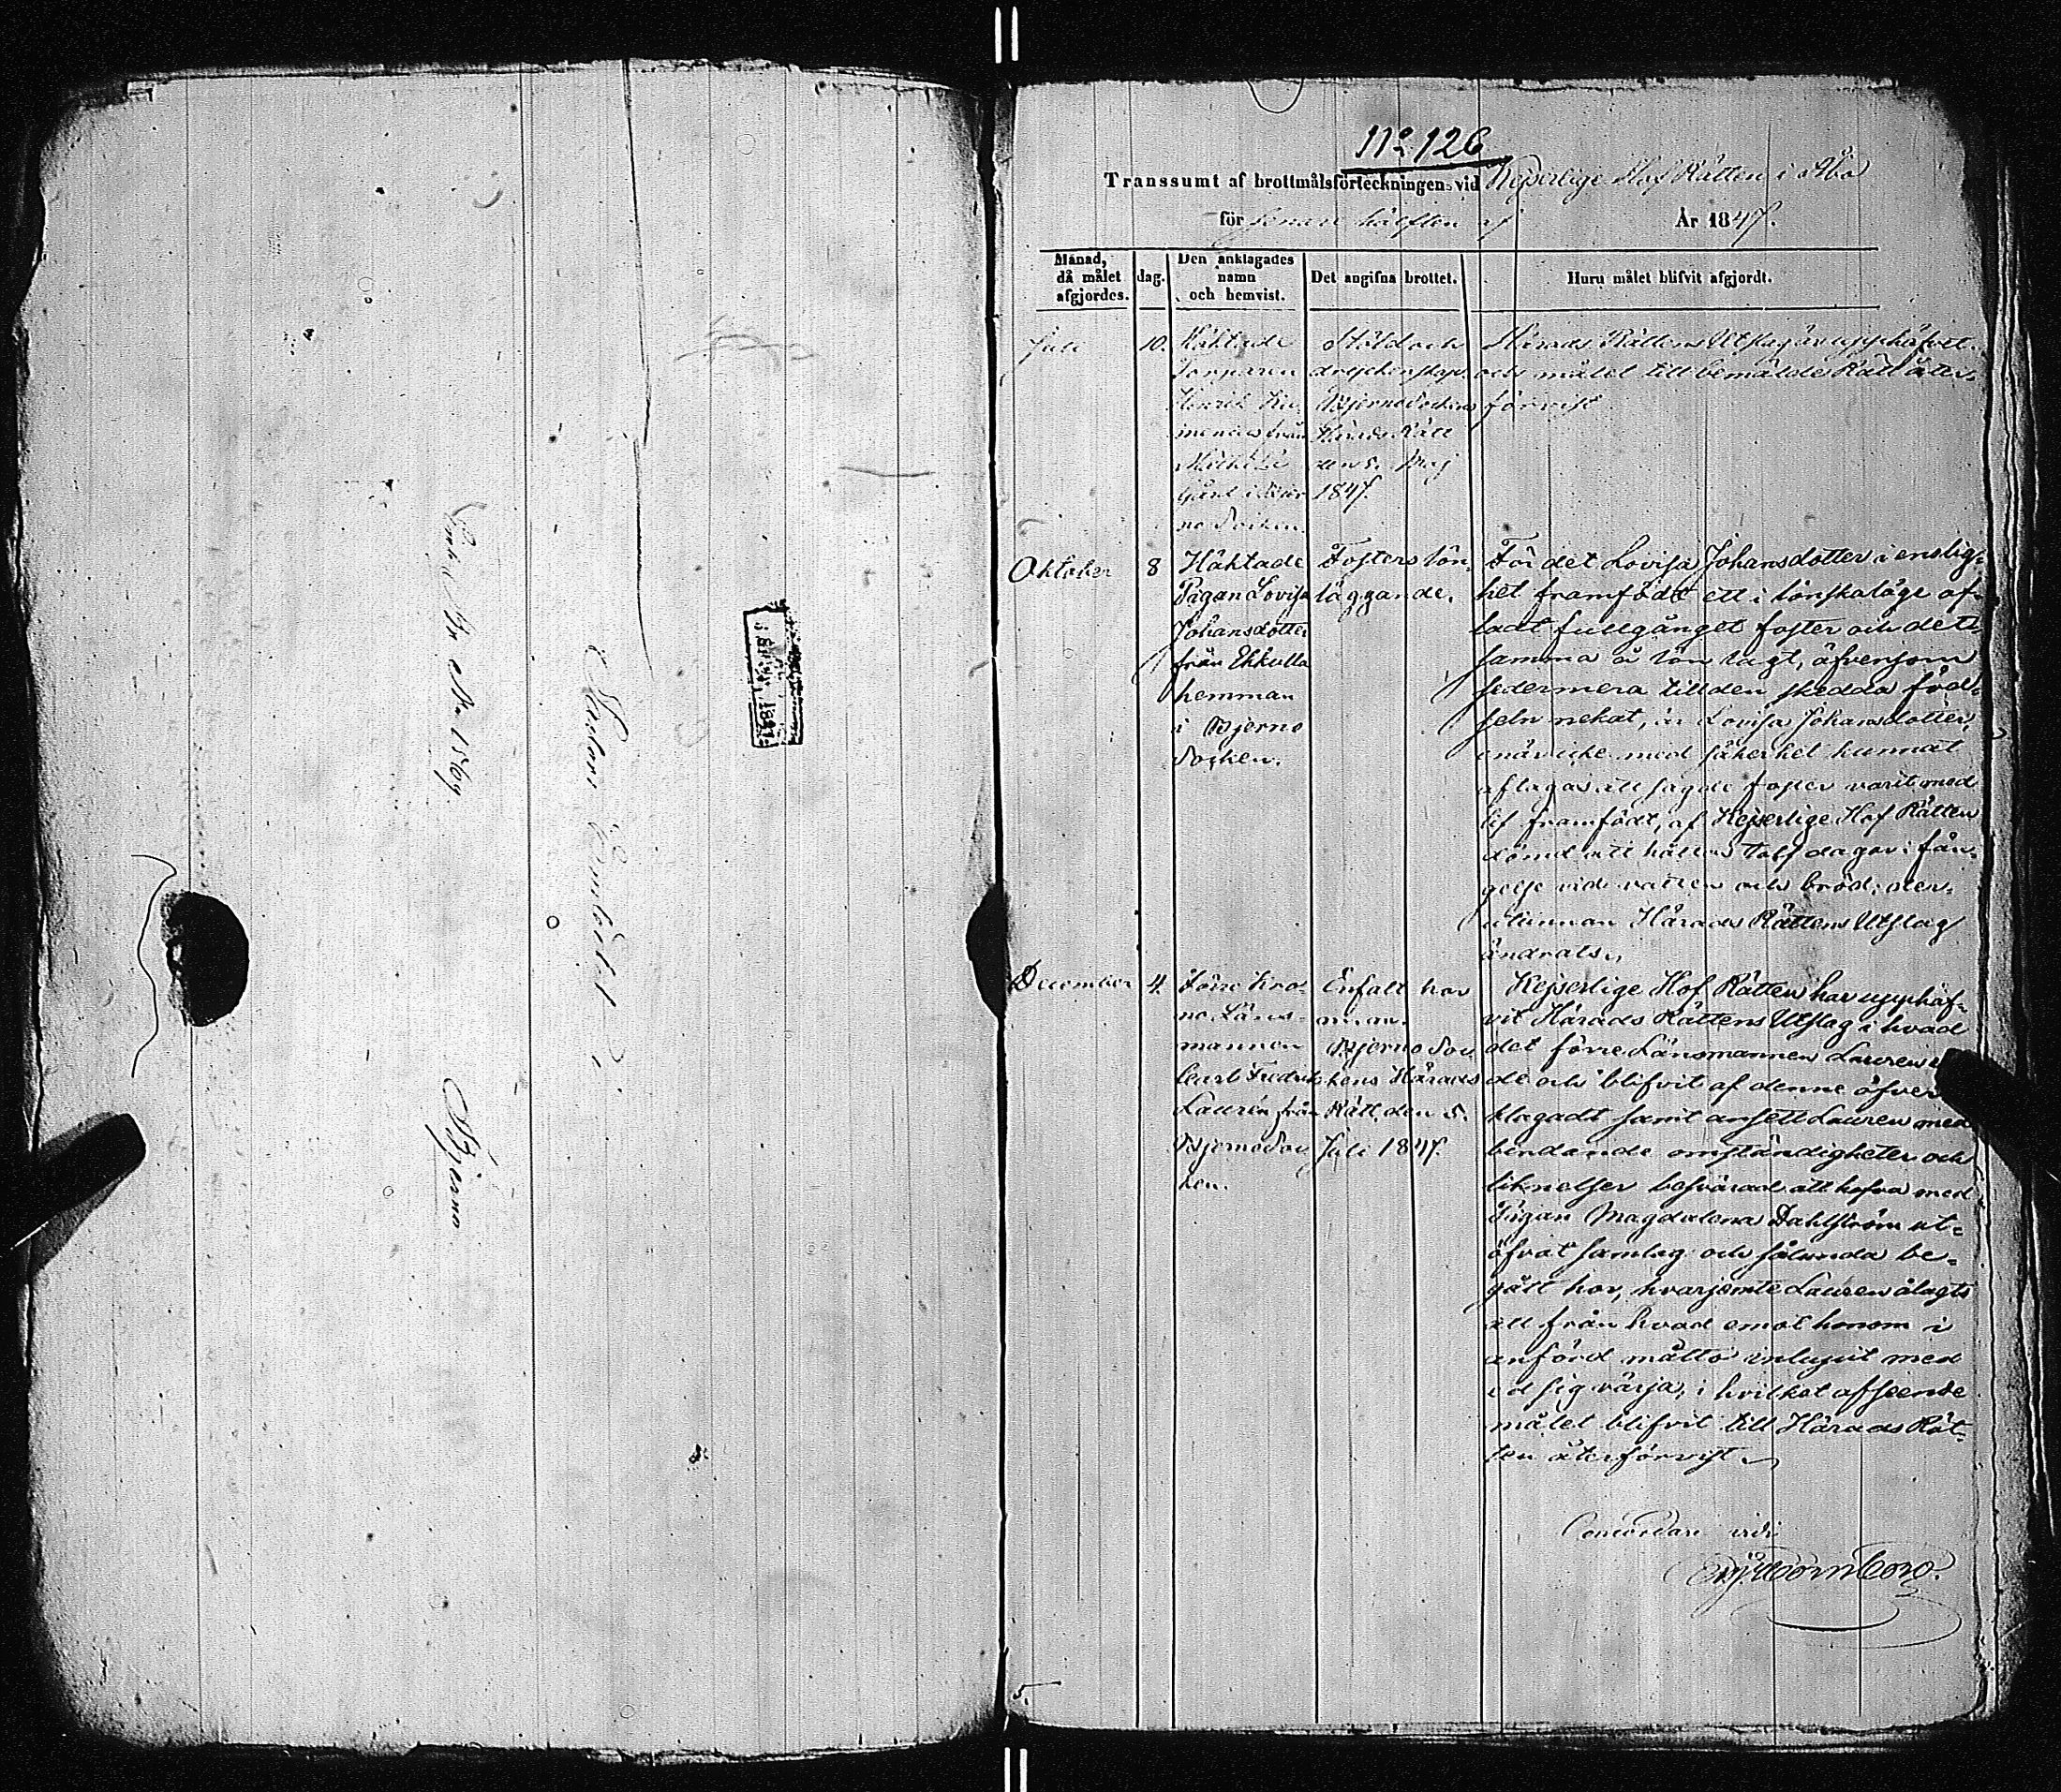 Bjerno
No 126
Transsumt af brottmålsförteckningen vid Kejserlige Hof Rätten i Åbo
för senare hälften af År 1847.
Månad, då målet afgjordes.
dag.
Den anklagades namn och hemvist.
Det angifna brottet.
Huru målet blifvit afgjordt.
Juli
10.
Häktade
Torparen
Henrik
från
gård i Bier
no Socken.
Stöld och
dryckenskap.
Bjerno Sockens
Härads Rätt
den 5. Maj
1847.
Härads Rättens Utslag är upphäfvet
och målet till bemälde Rätt åter-
förvist
Oktober
8
Häktade
Pigan Lovisa
Johansdotter
från Ekkulla
hemman
i Bjerno
Socken.
Fosters lön-
läggande.
För det Lovisa Johansdotter i enslig-
het framfödt ett i lönskaläge af-
ladt fullgånget foster och det-
samma å lön lagt, äfvensom
sedermera till den skedda föd-
seln nekat, är Lovisa Johansdotter,
enär icke med säkerhet kunnat
aftagas att sagde foster varit med
lif framfödt, af Kejserlige Hof Rätten
dömd att hållas tolf dagar i fän-
gelse vid vatten och bröd; der-
utinnan Härads Rättens Utslag
ändrats.
December
4.
Förre Kro-
no Läns-
mannen
Carl Fredrik
Laurén från
Bjerno Soc
ken.
Enfalt hor
Bjerno Soc
kens Härads
Rätt den 5.
Juli 1847.
Kejserlige Hof Rätten har upphäf-
vit Härads Rättens Utslag i hvad
det förre Länsmannen Lauren
de och blifvit af denne öfver
klagadt samt ansett Lauren med
bindande omständigheter och
liknelser besvärad att hafva med
Pigan Magdalena Dahlström ut-
öfvat samlag och sålunda be-
gått hor, hvarjemte Lauren ålagts
att från hvad emot honom i
anförd måtto inlupit med
ed sig värja, i hvilket afseende
målet blifvit till Härads Rät-
ten återförvist.
Concordare vidi
5.